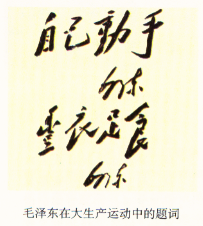 自己動手
豐衣足食
毛泽东在大生产运动中的题词